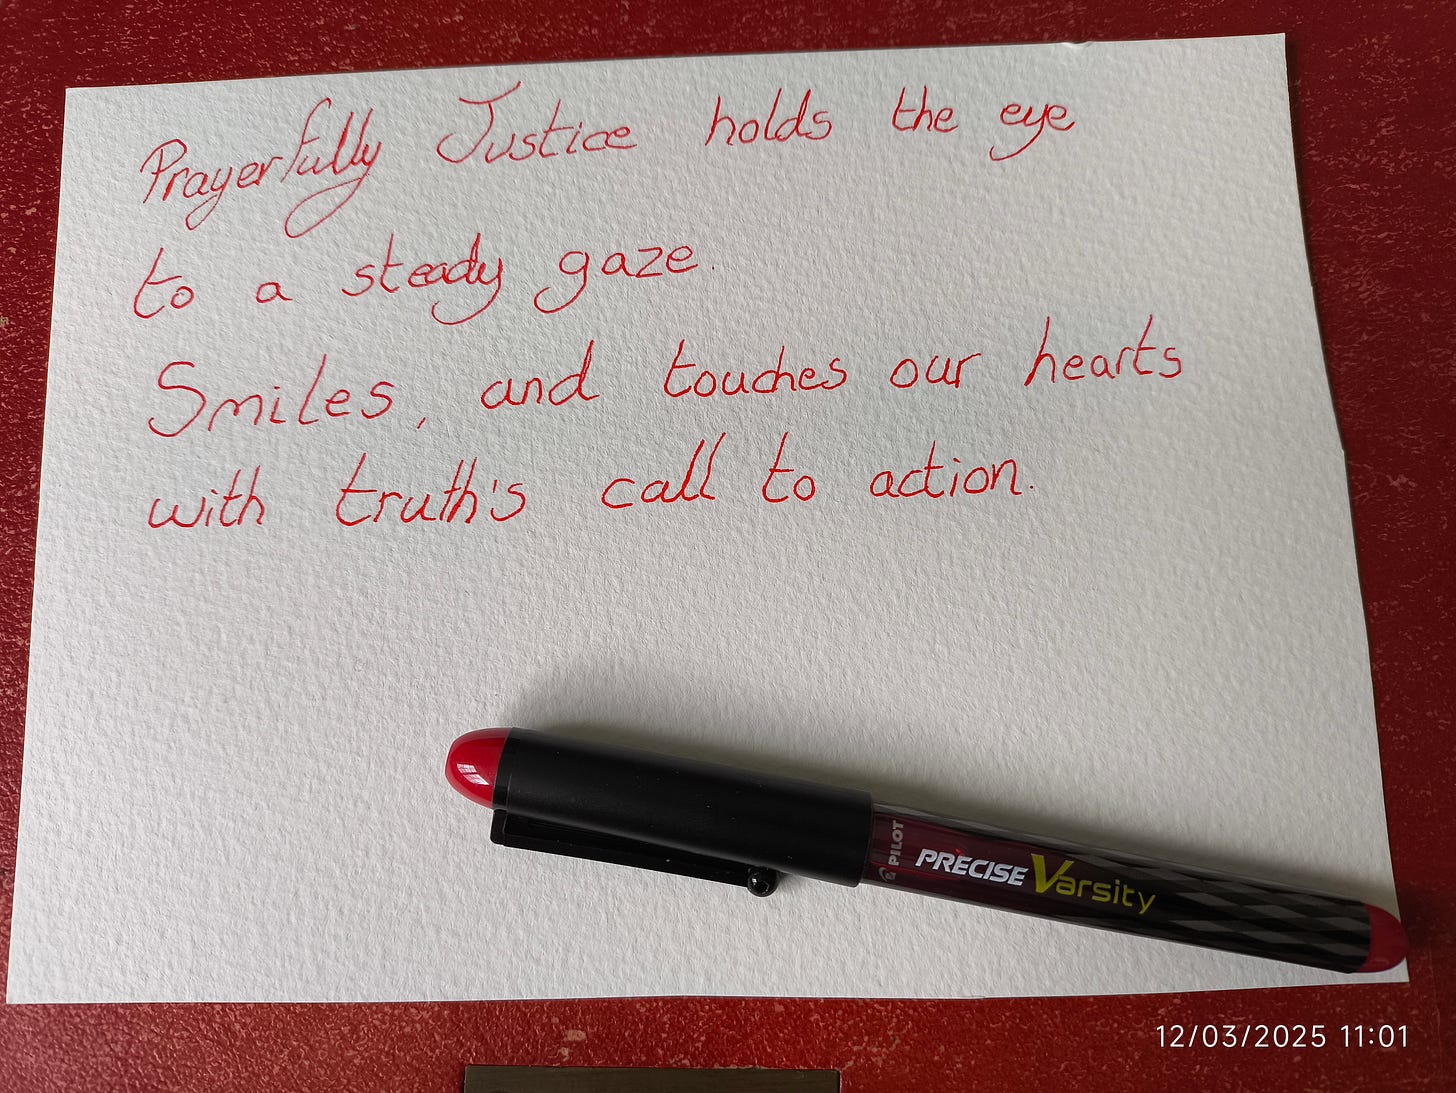 Prayerfully Justice holds the eye
to a steady gaze.
Smiles, and touches our hearts
with truth's call to action.
PILOT
PRECISE Varsity
12/03/2025 11:01